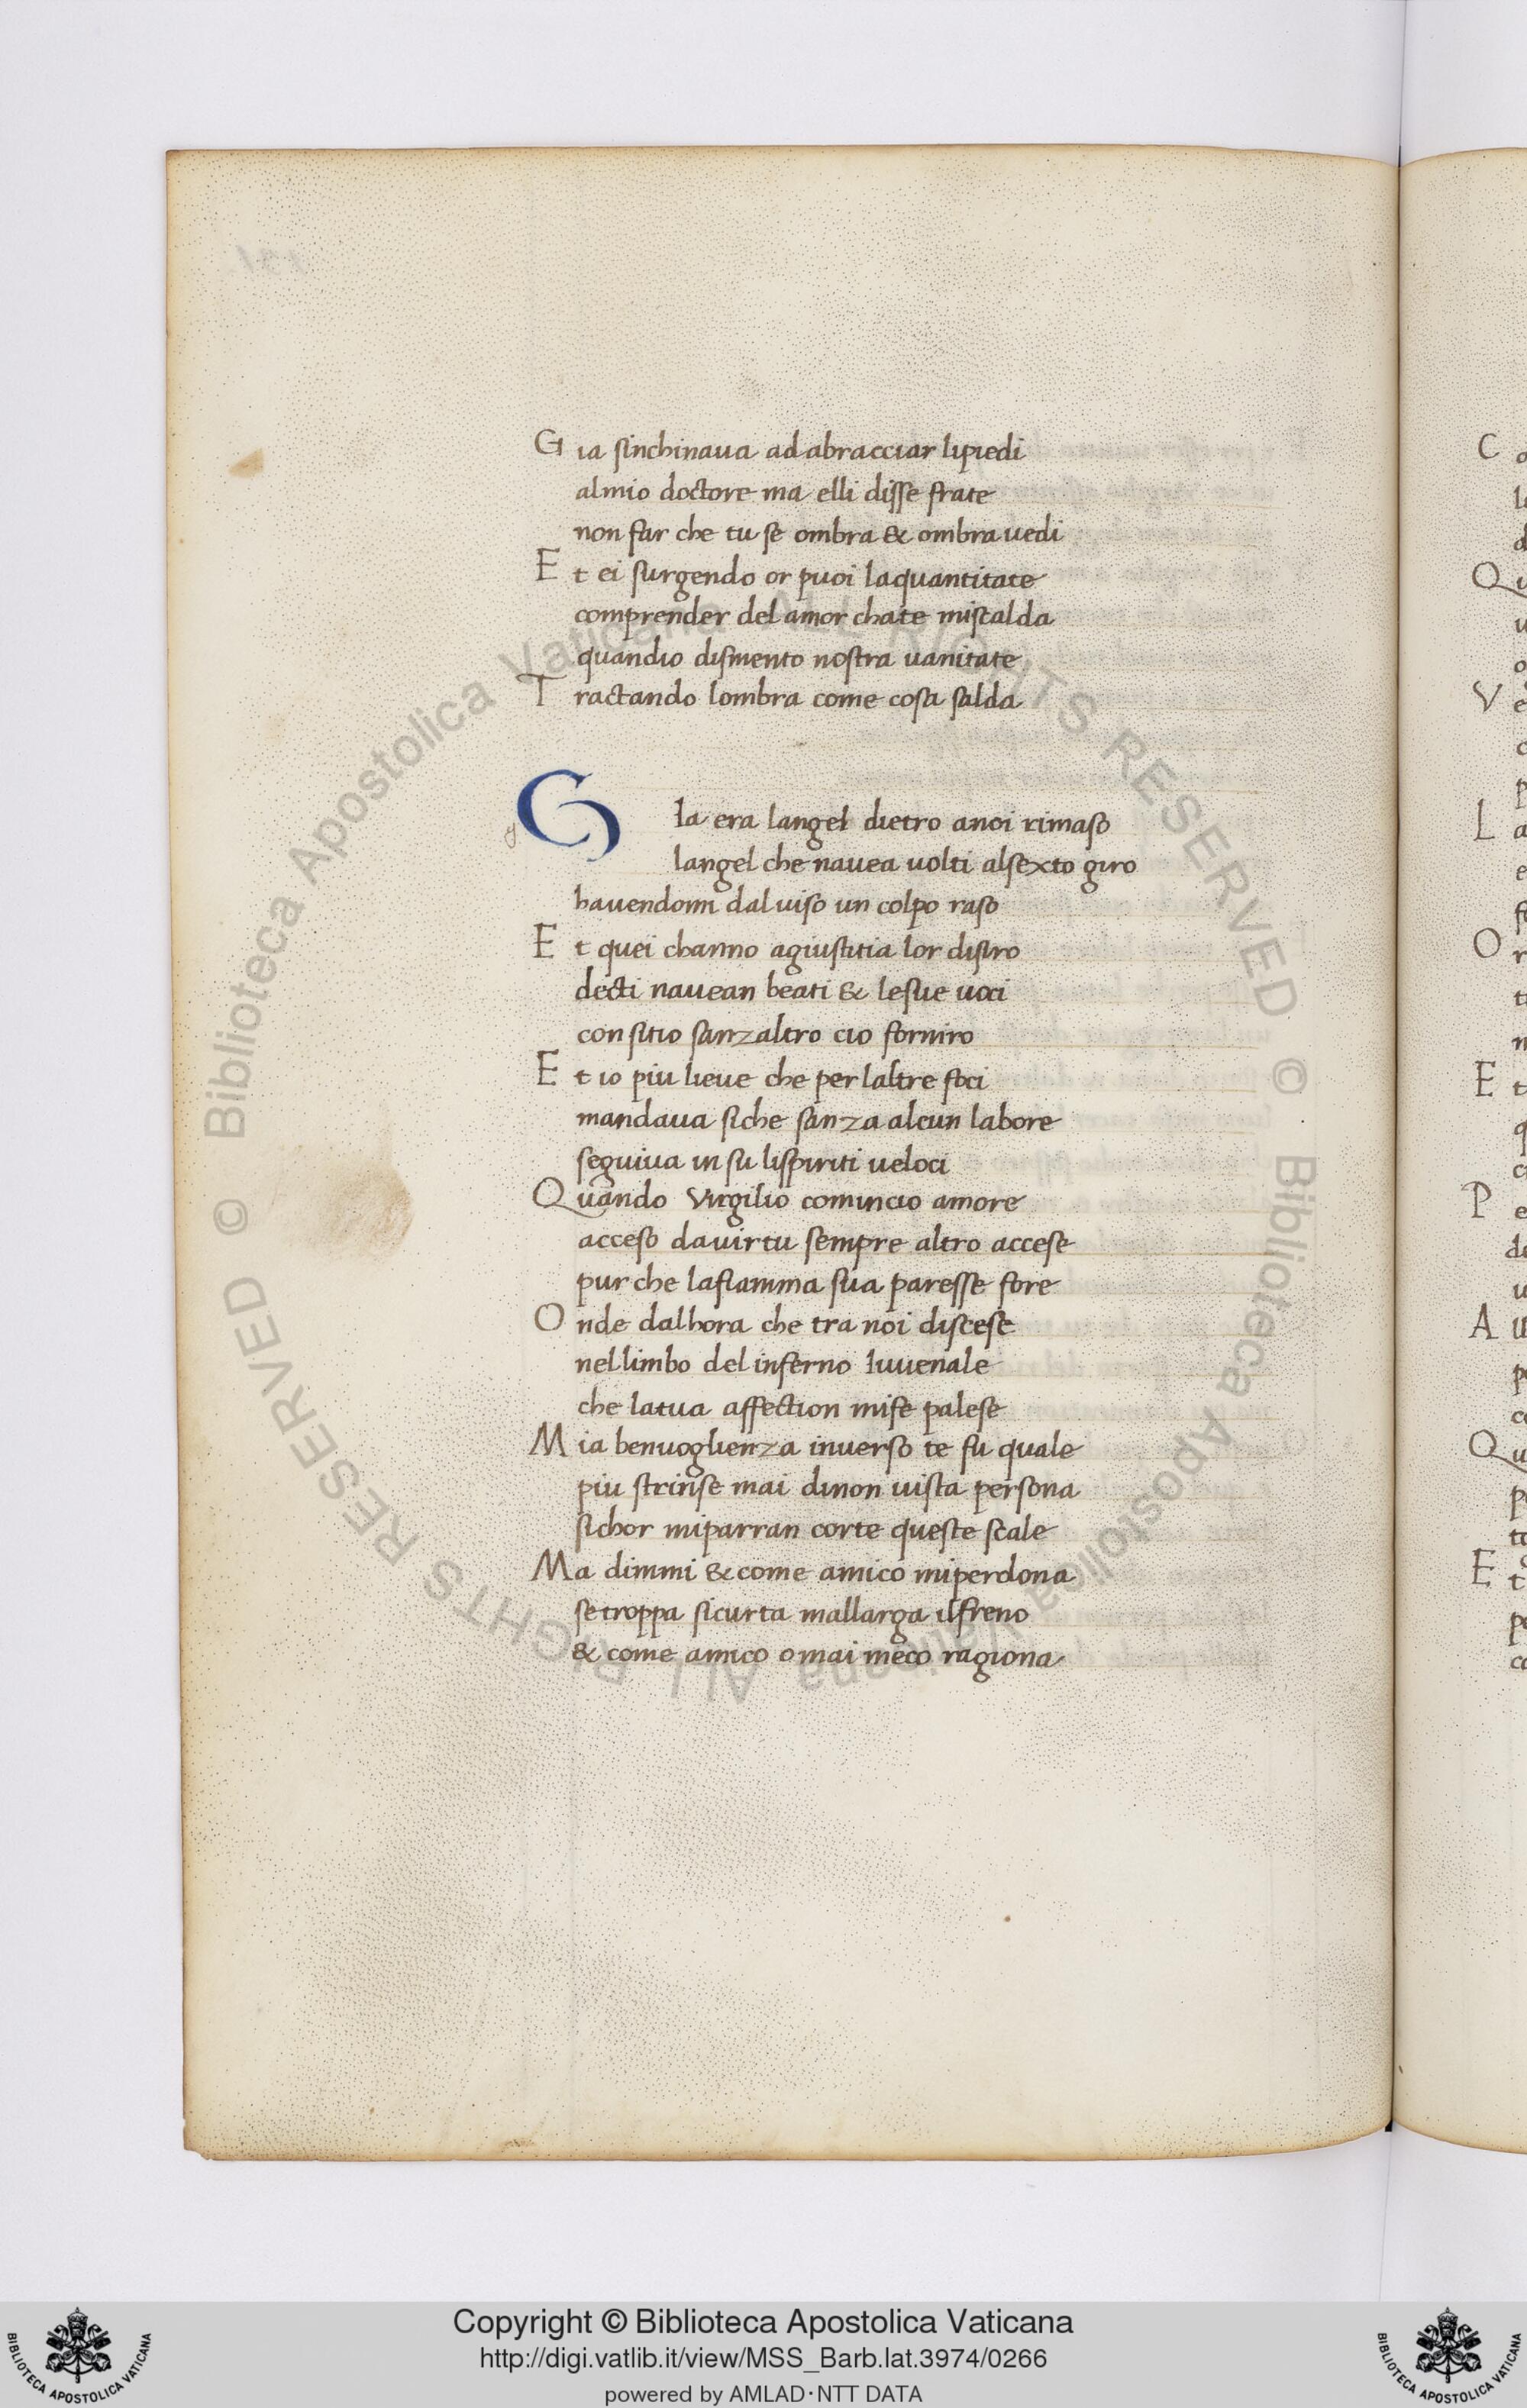 Gia sinchinaua ad abracciar lipiedi
almio doctore ma elli disse frate
non far che tu se ombra & ombra uedi
Et ei surgendo or puoi laquantitate
comprender del amor chate miscalda
quandio dismento nostra uanitate
Tractando lombra come cosa salda
GIa era langel dietro anoi rimaso
langel che nauea uolti alsexto giro
hauendomi dal uiso un colpo raso
Et quei channo agiustitia lor disiro
decti nauean beati & lesue uoci
con sitio sanzaltro cio forniro
Et io piu lieue che per laltre foci
mandaua siche sanza alcun labore
seguiua in su lispiriti ueloci
Quando Virgilio comincio amore
acceso dauirtu sempre altro accese
pur che lafiamma sua paresse fore
Onde dalhora che tra noi discese
nel limbo del inferno Iuuenale
che latua affection mife palese
Mia benuoglienza inuerso te fu quale
piu strinse mai dinon uista persona
sichor miparran corte queste scale
Ma dimmi & come amico miperdona
se troppa sicurta mallarga ilfreno
& come amico omai meco ragiona
© Biblioteca Apostolica Vaticana ALL RIGHTS RESERVED © Biblioteca Apostolica Vaticana ALL RIGHTS RESERVED
Copyright © Biblioteca Apostolica Vaticana
http://digi.vatlib.it/view/MSS_Barb.lat.3974/0266
powered by AMLAD·NTT DATA
BIBLIOTECA APOSTOLICA VATICANA
BIBLIOTECA APOSTOLICA VATICANA